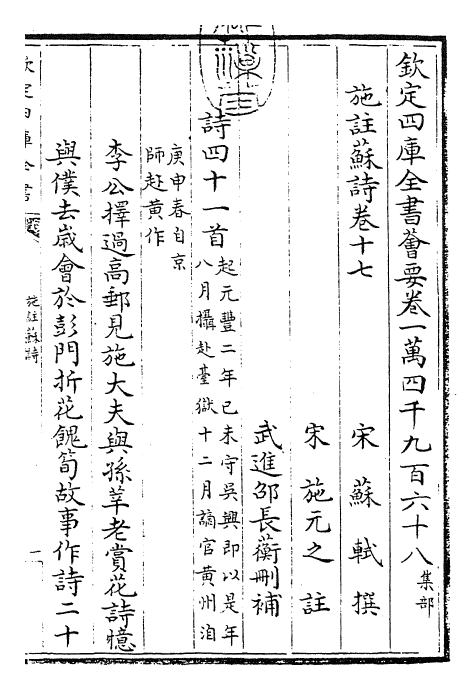 欽定四庫全書薈要卷一萬四千九百六十八集部
施註蘇詩卷十七
宋蘇軾撰
宋施元之註
武進邵長蘅刪補
詩四十一首起元豐二年已未守吳興即以是年
八月攝赴臺獄十二月謫官黃州洎
庚申春自京
師赴黃作
李公擇過高郵見施大夫與孫莘老賞花詩憶
與僕去歲會於彭門折花餽筍故事作詩二十
欽定四庫全書
施註蘇詩
一